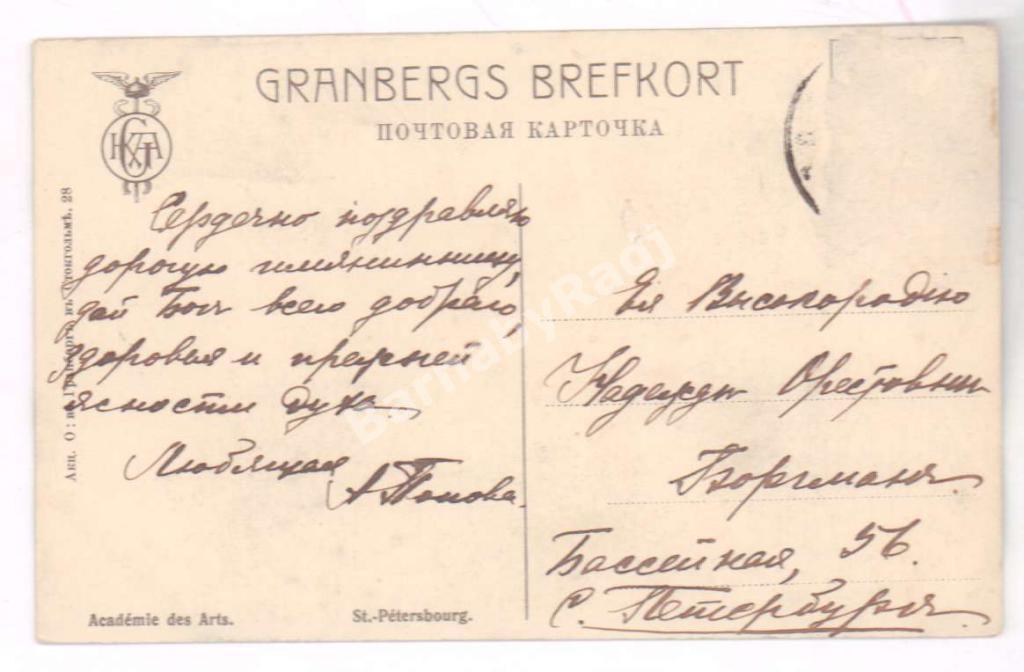 GRANBERGS BREFKORT
ПОЧТОВАЯ КАРТОЧКА
Акц. О:во Гранбергъ въ Стокгольмѣ. 28
Сердечно поздравляю
дорогую имянинницу,
дай Богъ всего добраго,
здоровья и прежней
ясности духа
Любящая
А Попова.
Ея Высокородію
Надеждѣ Орестовнѣ
Боргманъ.
Бассейная, 5б.
С. Петербургъ.
Académie des Arts. St.-Pétersbourg.
BarnabyRadj